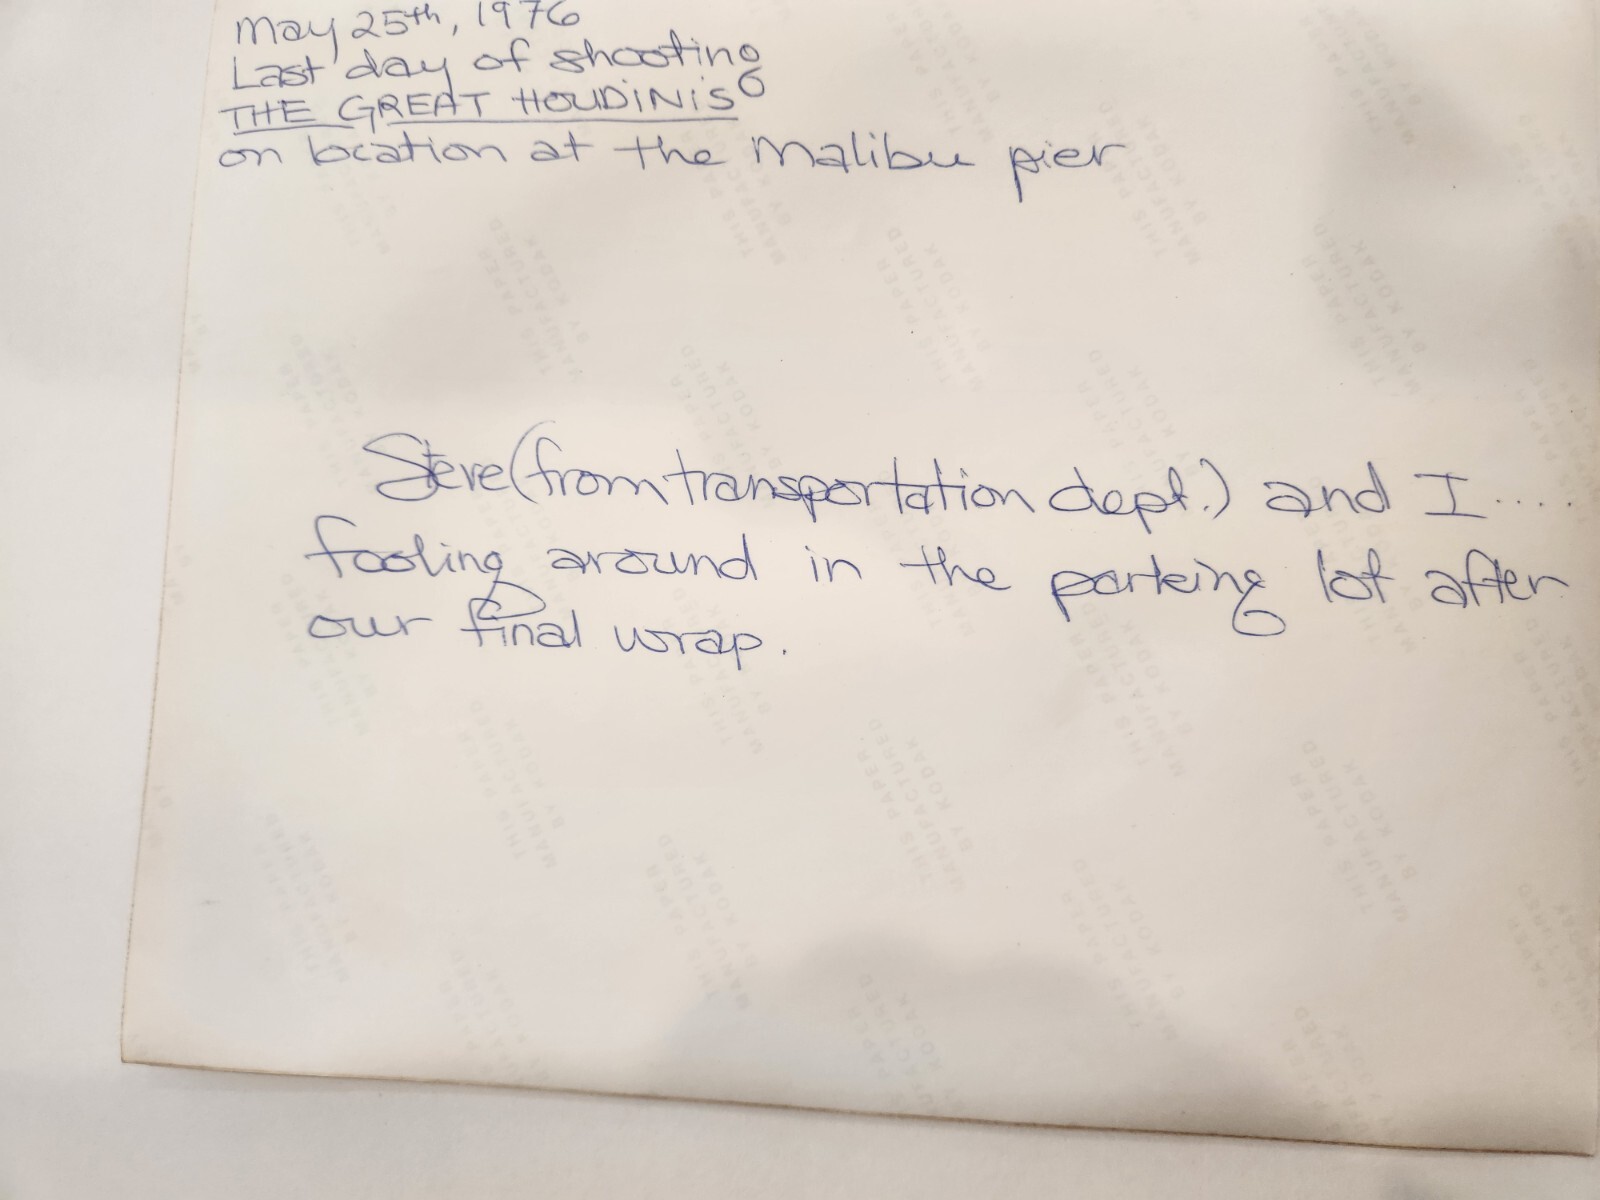 May 25th, 1976
Last day of shooting
THE GREAT HOUDINIS
on location at the Malibu pier
Steve (from transportation dept.) and I....
fooling around in the parking lot after
our final wrap.
THIS PAPER
MANUFACTURED
BY KODAK